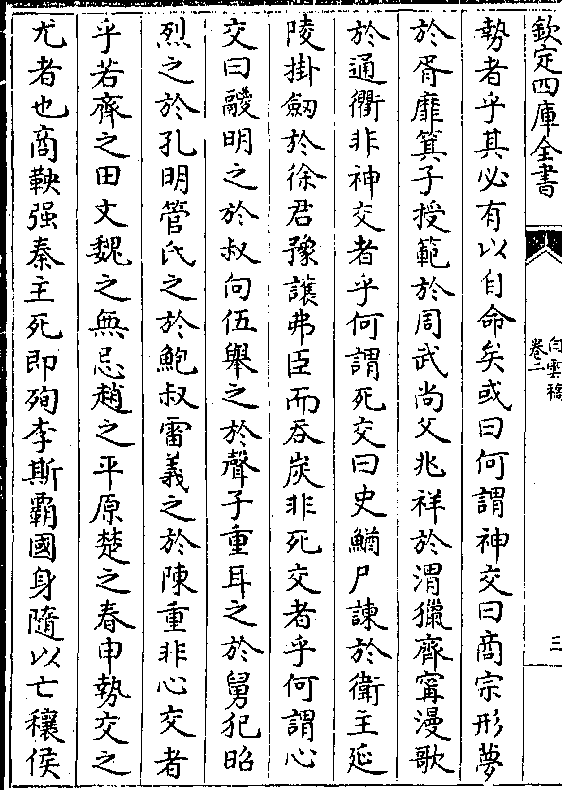 欽定四庫全書
白雲稿
卷二
三
勢者乎其必有以自命矣或曰何謂神交曰商宗形夢
於胥靡箕子授範於周武尚父兆祥於渭獵齊甯漫歌
於通衢非神交者乎何謂死交曰史鰌尸諫於衛主延
陵掛劒於徐君豫讓弗臣而吞炭非死交者乎何謂心
交曰鬷明之於叔向伍舉之於聲子重耳之於舅犯昭
烈之於孔明管氏之於鮑叔雷義之於陳重非心交者
乎若齊之田文魏之無忌趙之平原楚之春申勢交之
尤者也商鞅强秦主死即殉李斯霸國身隨以亡穰侯